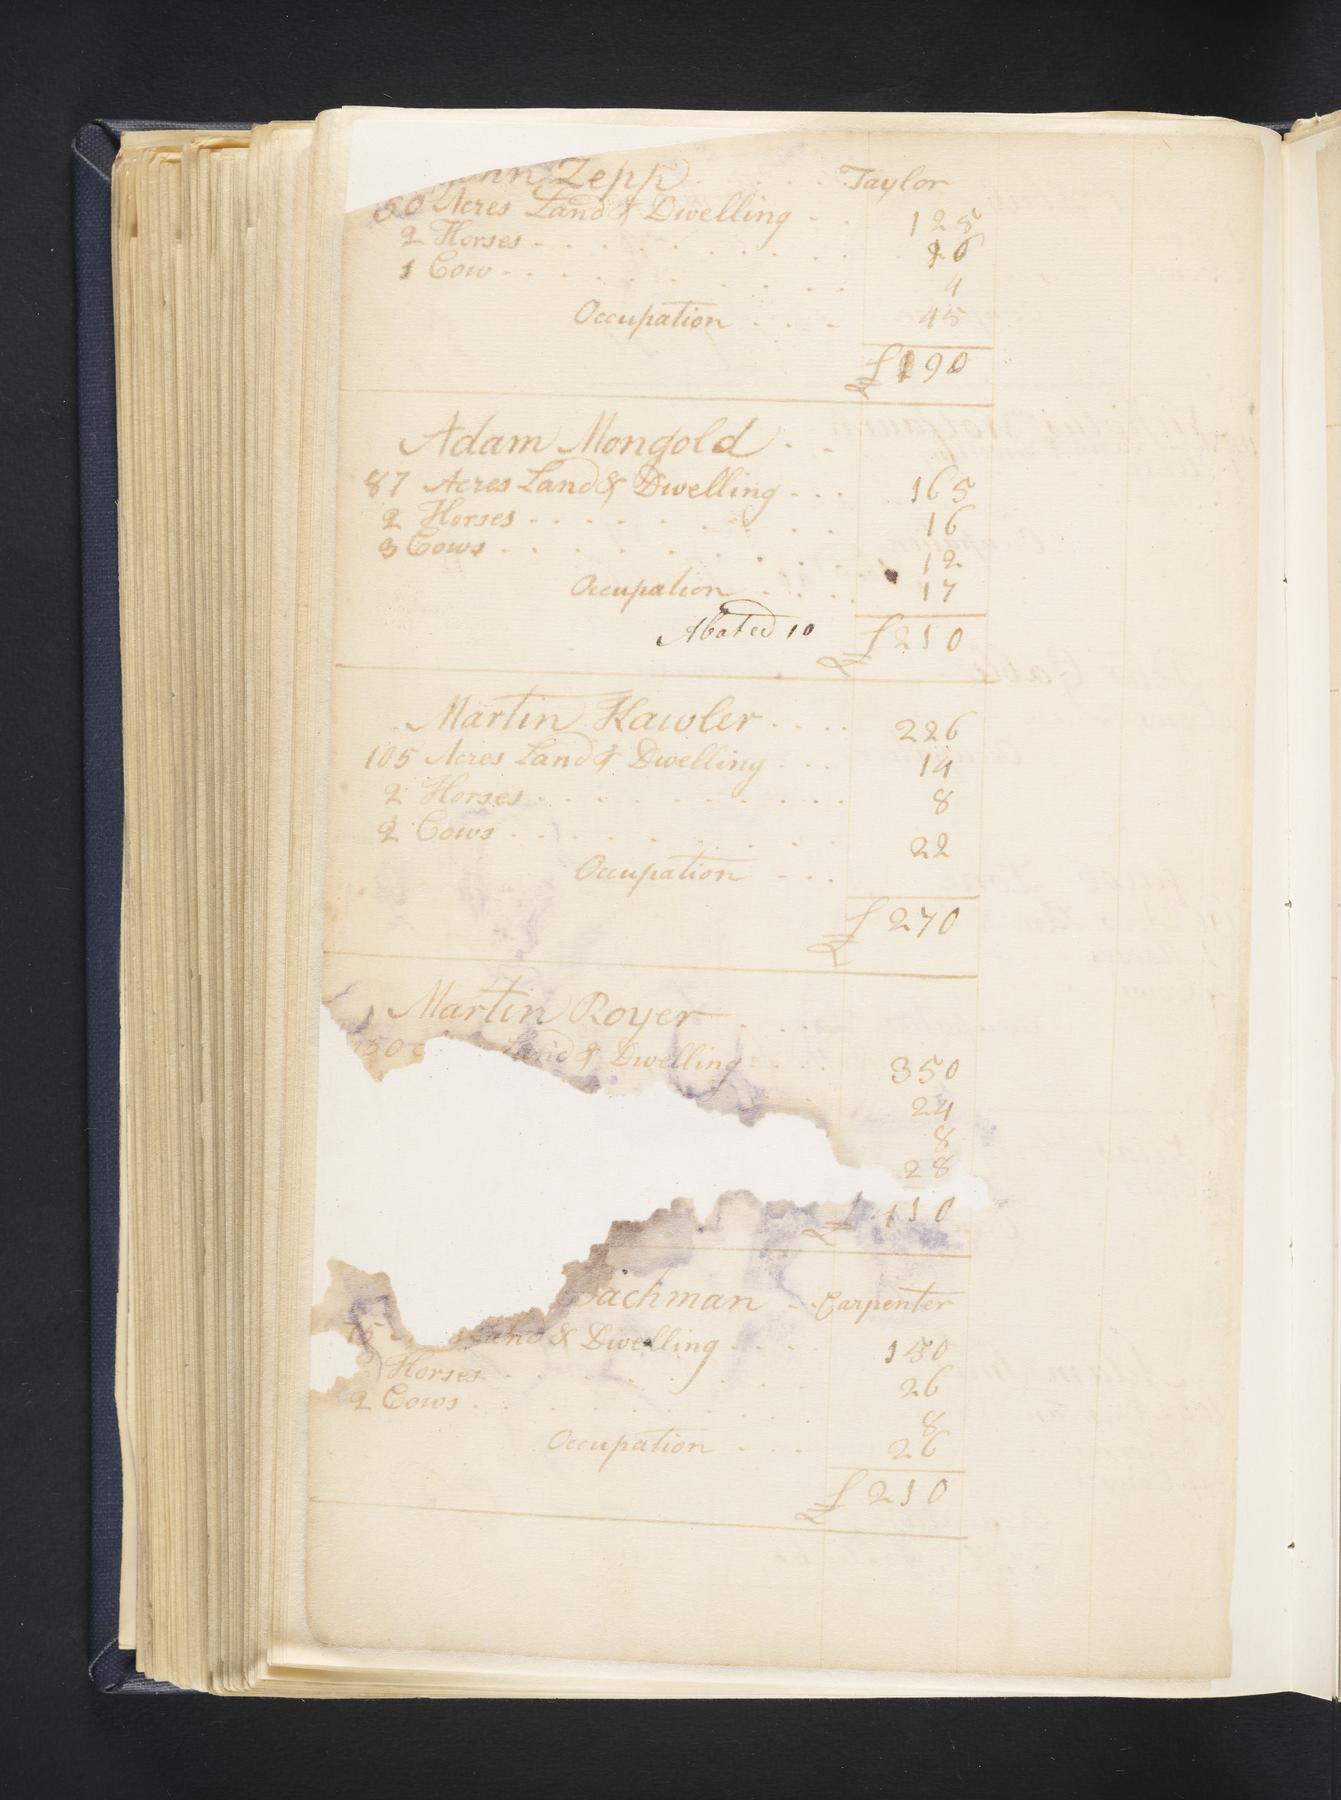 Zepp Taylor
50 Acres Land & Dwelling 125
2 Horses 16
1 Cow 4
Occupation 45
£190
Adam Mongold
87 Acres Land & Dwelling 165
2 Horses 16
3 Cows 12
Occupation 17
Abated 10 £210
Martin Kawler 226
105 Acres Land & Dwelling 14
2 Horses 8
2 Cows 22
Occupation
£270
Martin Royer
Land & Dwelling 350
24
8
28
£410
Bachman Carpenter
75 Land & Dwelling 150
Horses 26
2 Cows 8
Occupation 26
£210